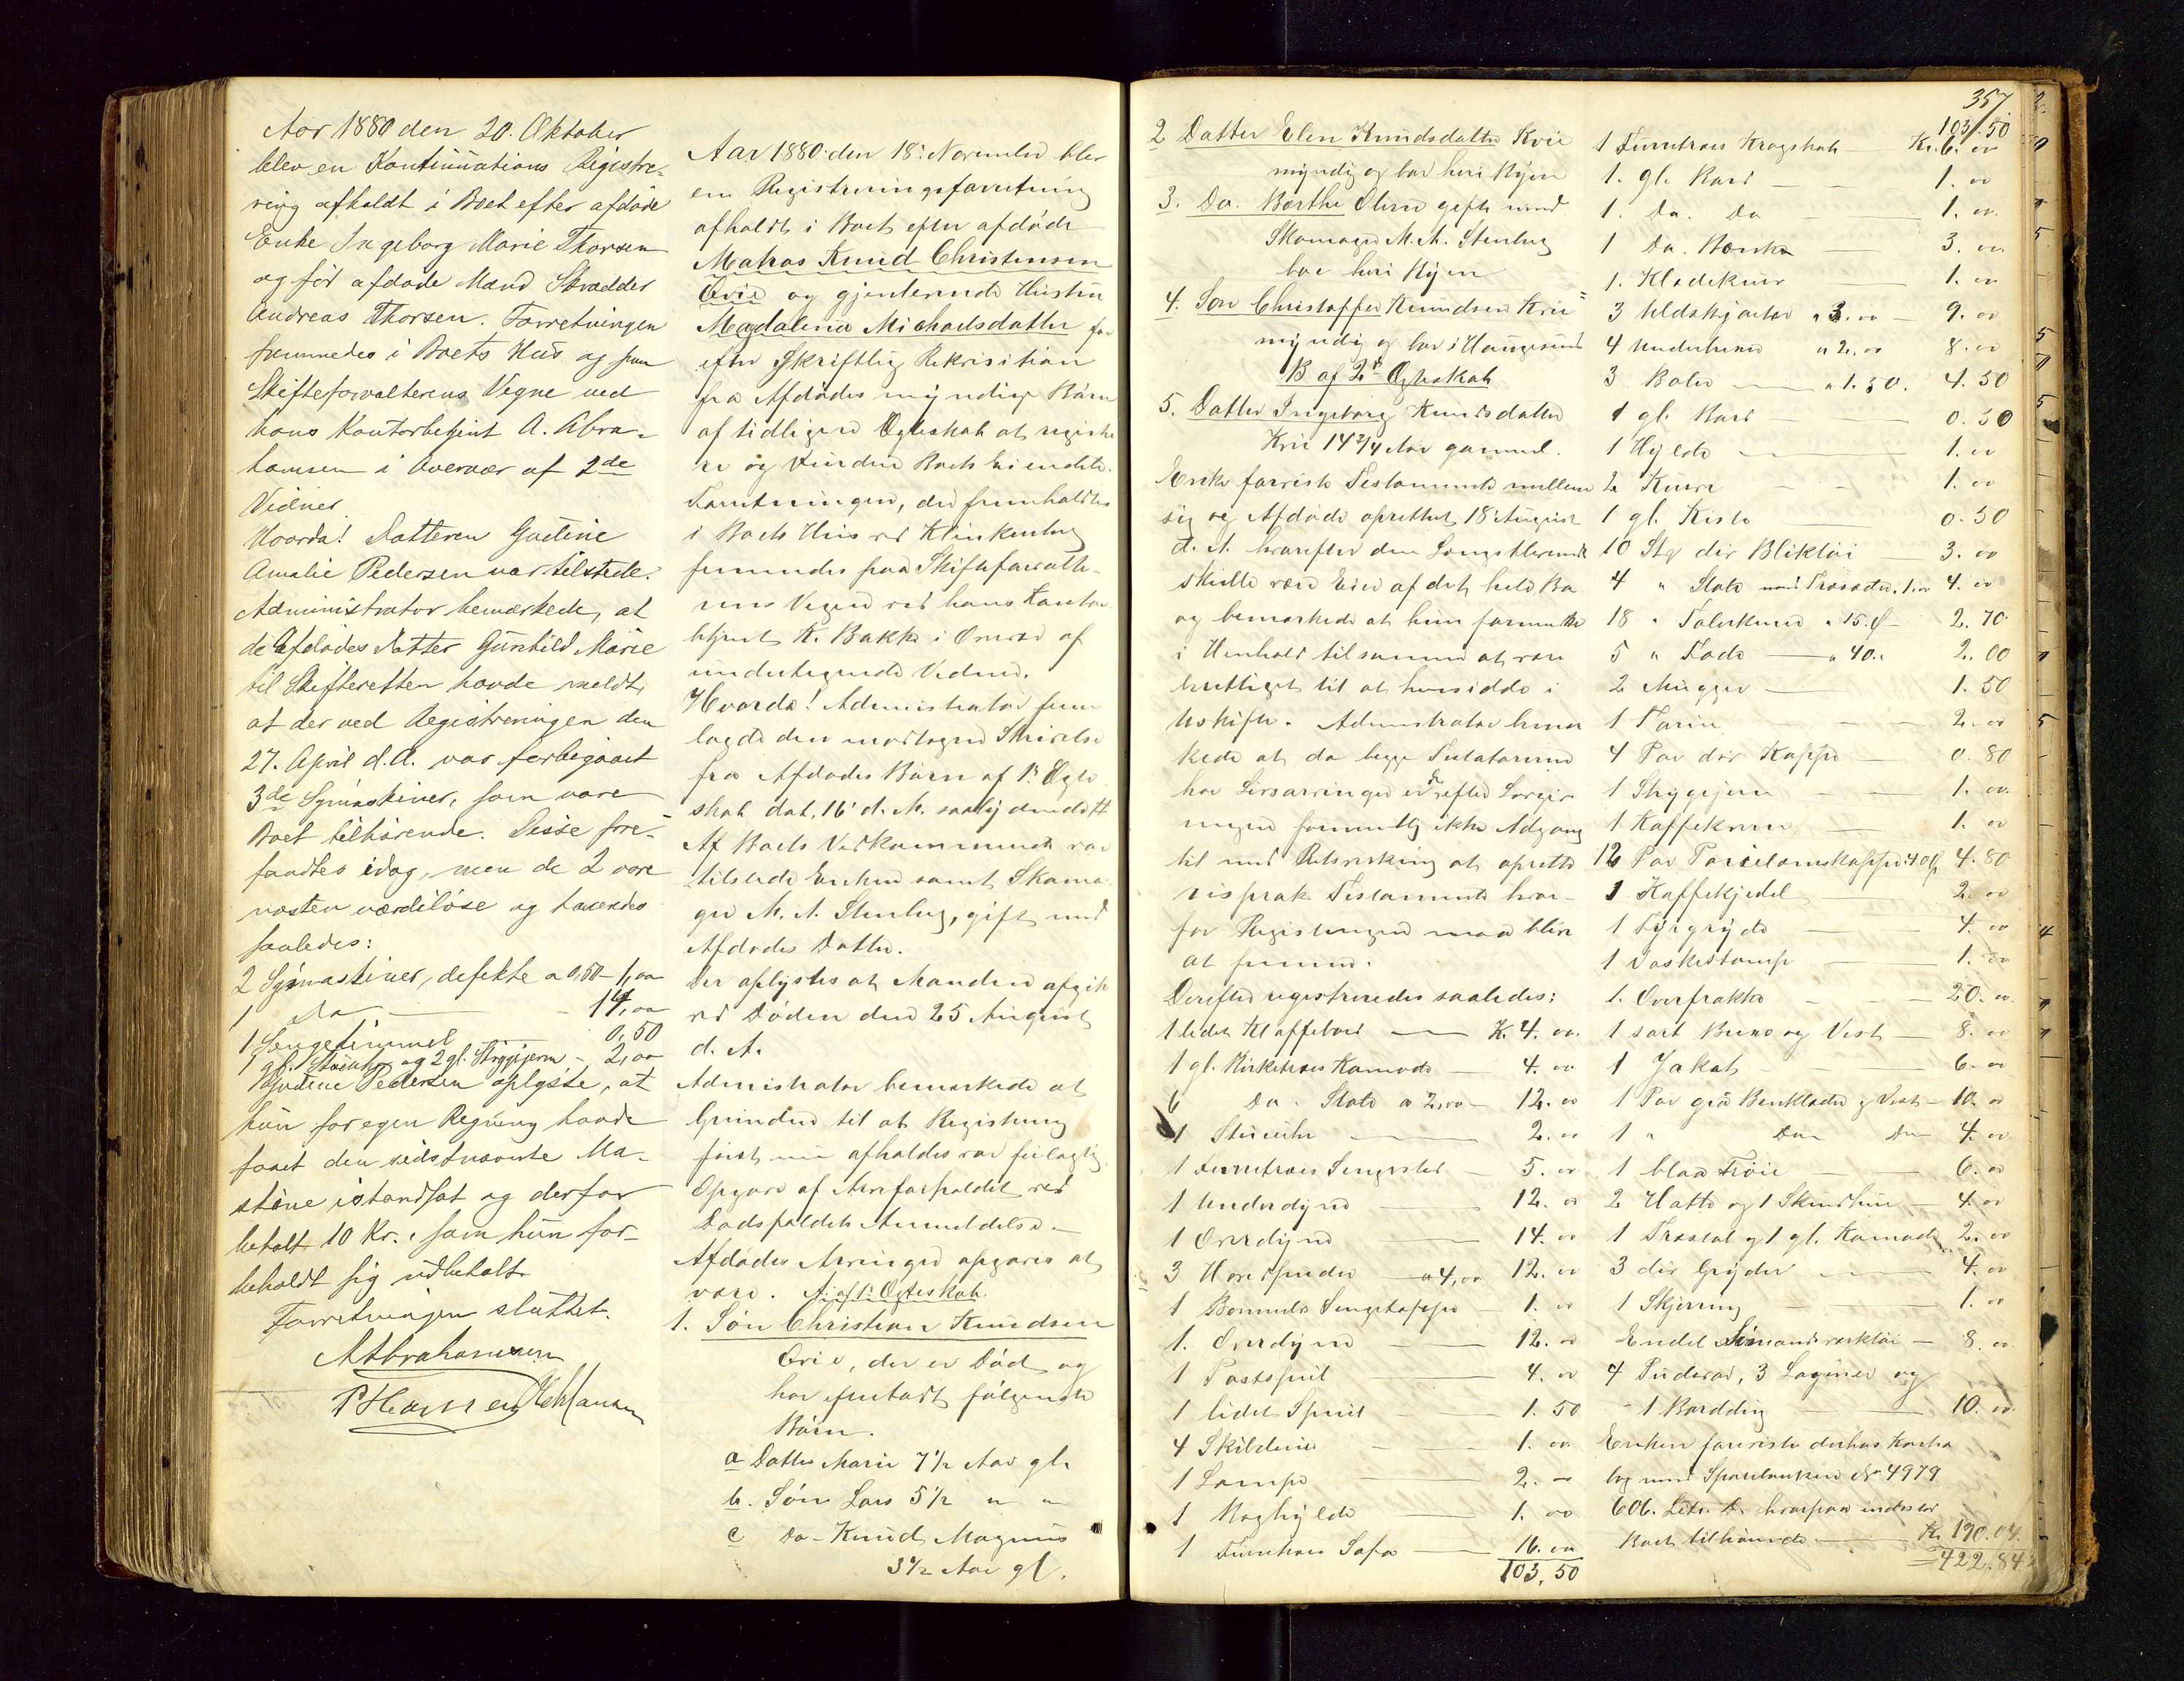 Aar 1880 den 20. Oktober
blev en Kontinuations Registre-
ring afholdt i Boet efter afdøde
Enke Ingeborg Marie Thorsen
og før afdøde Mand Skrædder
Andreas Thorsen. Forretningen
fremmedes i Boets Hus og paa
Skifteforvalterens Vegne ved
hans Kontorbetjent A. Abra-
hamsen i Overvær af 2de
Vidner
Hvorda! Datteren Gustine
Amalie Pedersen var tilstede.
Administrator bemærkede, at
de Afdødes Datter Gunhild Marie
til Skifteretten havde meldt,
at der ved Registreringen den
27. April d.A. var forbigaaet
3de Symaskiner, som vare
Boet tilhørende. Disse fore-
fandtes idag, men de 2 vare
næsten værdiløse og taxeredes
saaledes:
2 Symaskiner, defekte a 0,50 - 1,00
1 do - 14,00
1 Sengehimmel - 0,50
1 gl. Stueuhr og 2 gl. Strygejern - 2,00
Gustine Pedersen oplyste, at
hun for egen Regning havde
faaet den sidstnævnte Ma-
skine istandsat og derfor
betalt 10 Kr., som hun for-
beholdt sig udbetalt.
Forretningen sluttet.
A Abrahamsen
P Hansen
Aar 1880 den 18. November blev
en Registreringsforretning
afholdt i Boet efter afdøde
Matros Knud Christensen
Qvie og gjenlevende Hustru
Magdalena Michaelsdatter for
efter Skriftlig Rekvisition
fra Afdødes myndige Børn
af tidligere Egteskab at registre
re og vurdere Boets Eiendele.
Forretningen, der fremholdtes
i Boets Hus ved Klinkenberg
fremmedes paa Skifteforvalte-
rens Vegne ved hans Kontor
betjent K. Bakke i Overvær af
undertegnede Vidner.
Hvorda! Administrator frem
lagde den modtagne Skrivelse
fra Afdødes Børn af 1st Egte
skab dat. 16 d. M. saalydende #
Af Boets Vedkommende var
tilstede Enken samt Skoma-
ger M. A. Stenberg, gift med
Afdødes Datter.
Der oplystes at Manden afgik
ved Døden den 25 August
d. A.
Admistrator bemærkede at
Grunden til at Registrering
først nu afholdes var feilagtig
Opgave af Arveforholdet ved
Dødsfaldets Anmeldelse.
Afdødes Arvinger opgaves at
være. A. af 1st Egteskab.
1. Søn Christian Knudsen
Qvie, der er Død og
har efterladt følgende
Børn.
a Datter Marie 7 1/2 Aar gl.
b. Søn Lars 5 1/2 " "
c Do - Knud Magnus
3 1/2 Aar gl.
357
2 Datter Elen Knudsdatter Kvie
myndig og bor heri Byen
3. Do. Barthe Oline gift med
Skomager M. A. Stenberg
bor heri Byen
4. Søn Christoffer Knudsen Kvie
myndig og bor i Haugesund
B af 2d Egteskab
5. Datter Ingeborg Knudsdatter
Kvie 14 3/4 Aar gammel.
Enken foreviste Testamente mellem
sig og Afdøde oprettet 18 August
d. A. hvorefter den Længstlevende
skulde være Eier af det hele Bo
og bemærkede at hun formente
i Henhold til samme at være
berettiget til at hensidde i
Uskifte. Admistrator bemær
kede at da begge Testatorerne
har Livsarvinger er der efter Lovgiv
ningen formentlig ikke Adgang
til med Retsvirkning at oprette
vispræk Testamente hvor-
for Registreringen maa blive
at fremme.
Derefter registreredes saaledes:
1 lidet Klaffebord - K. 4. 00.
1 gl. Birketræes Kamode - 4. 00
6 Do. Stole a 2,00 - 12. 00
1 Stueuhr - 2. 00
1 Furutræes Sengested - 5. 00
1 Underdyne - 12. 00
1 Overdyne - 14. 00
3 Hovedpuder - a 4,00 12. 00
1 Bomulds Sengeteppe - 1. 00
1. Overdyne - 12. 00
1 Postspeil - 4. 00
1 lidet Speil - 1. 50
4 Skilderier - 1. 00.
1 Lampe - 2. -
1 Boghylde - 1. 00
1 Furutræes Sofa - 16. 00
103,50
103.50
1 Furutræes Kragskab - Kr. 6. 00
1. gl. Bord - 1. 00
1. Do. Do - 1. 00.
1 Do. Bænk - 3. 00
1. Klædekurv - 1. 00
3 Uldskjorter a 3.00 - 9. 00
4 Underbuxer a 2.00 8. 00
3 Boler - a 1.50. 4. 50
1 gl. Bord - 0. 50
1 Hylde - 1. 00
2 Kurve - 1. 00
1 gl. Kiste 0. 50
10 Stkr dir Bliktøi - 3. 00
4 " Stole med Træsæder a 1.00 4. 00
18 " Talerkener a 15. Ø - 2. 70.
5 " Fade - a 40. " 2. 00
2 Mugger - 1. 50
1 Tarin - 2. 00
4 Par dir Kopper - 0. 80
1 Strygejern - 1. 00.
1 Kaffekværn - 1. 00
12 Par Porcelænskopper a 40 Ø 4. 80
1 Kaffekjedel - 2. 00
1 Fyrgryde - 4. 00
1 Vaskestamp - 1. 00
1. Overfrakke - 20. 00.
1 sort Buxe og Vest - 8. 00
1 Jakat - 6. 00
1 Par graa Benklæder og Vest - 10. 00
1 " Do Do - 4. 00
1 blaa Trøie - 6. 00
2 Hatte og 1 Skindhue - 4. 00
1 Træstol og 1 gl. Kamode 2. 00
3 dir Gryder - 4. 00
1 Skjæring - 1. 00
Endel Simandsværktøi - 8. 00
4 Pudevar, 3 Laginer og
1 Borddug - 10. 00.
Enken foreviste derhos Kontra
bog med Sparebanken No 4979
606. Litr. D. hvorpaa indestod
Boet tilhørende - Kr. 190.04.
= 422.84.